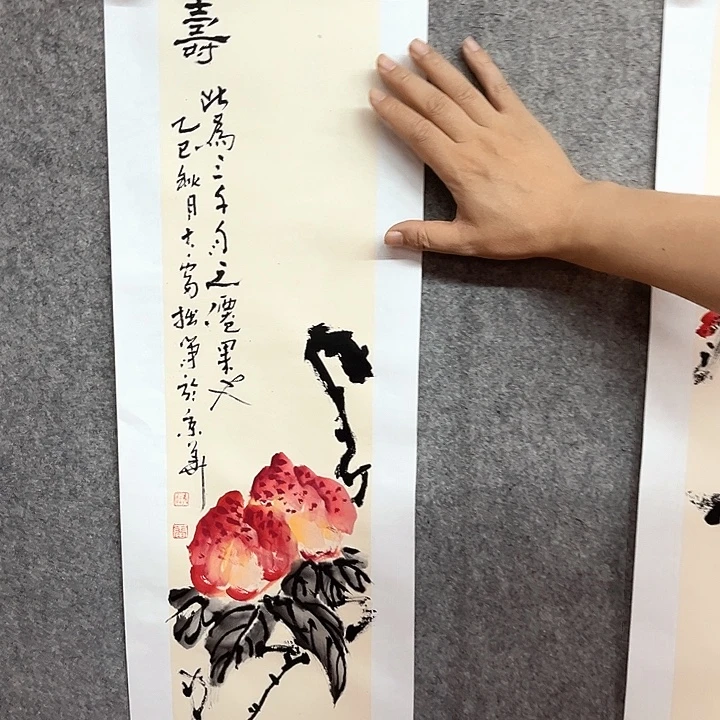 壽
此為三千年之僊果也
乙巳秋月大寫拙筆於京華